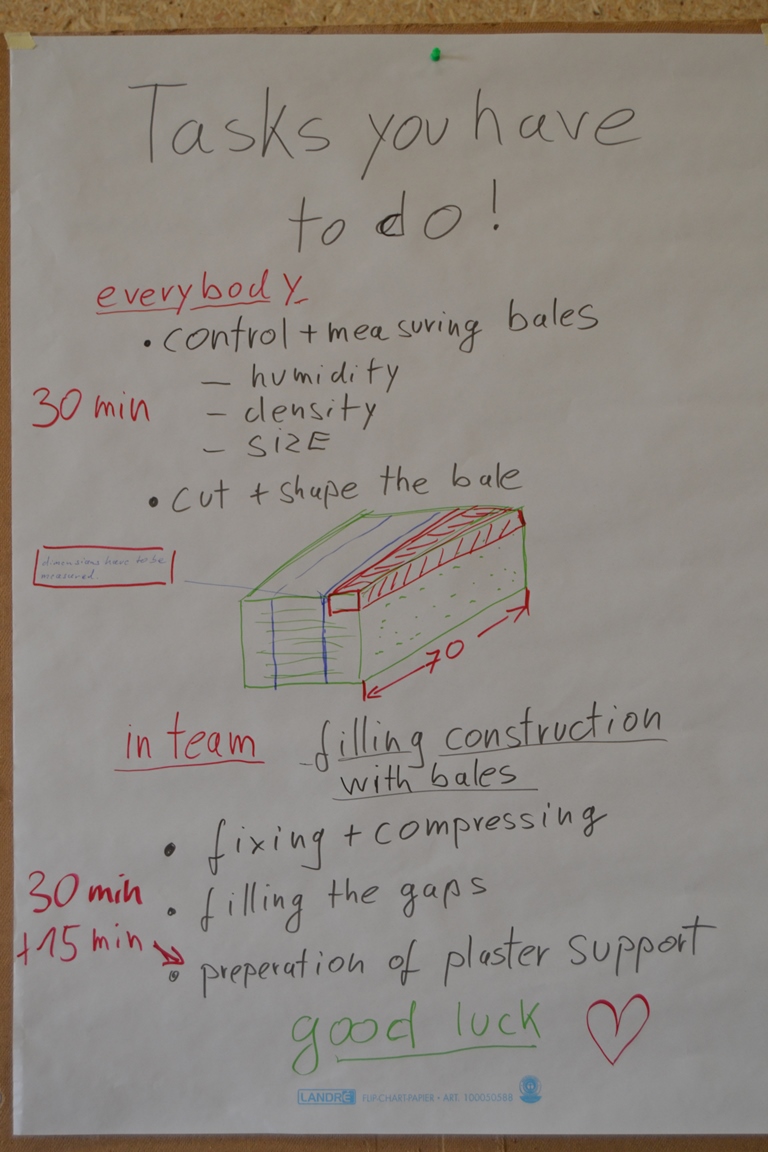 Tasks you have
to do!
everybody
• control + measuring bales
– humidity
30 min
– density
– SIZE
• cut + shape the bale
dimensions have to be
measured.
70
in team
– filling construction
with bales
• fixing + compressing
30 min
• filling the gaps
+15 min
• preperation of plaster support
good luck
LANDRÉ FLIP-CHART-PAPIER • ART. 100050588